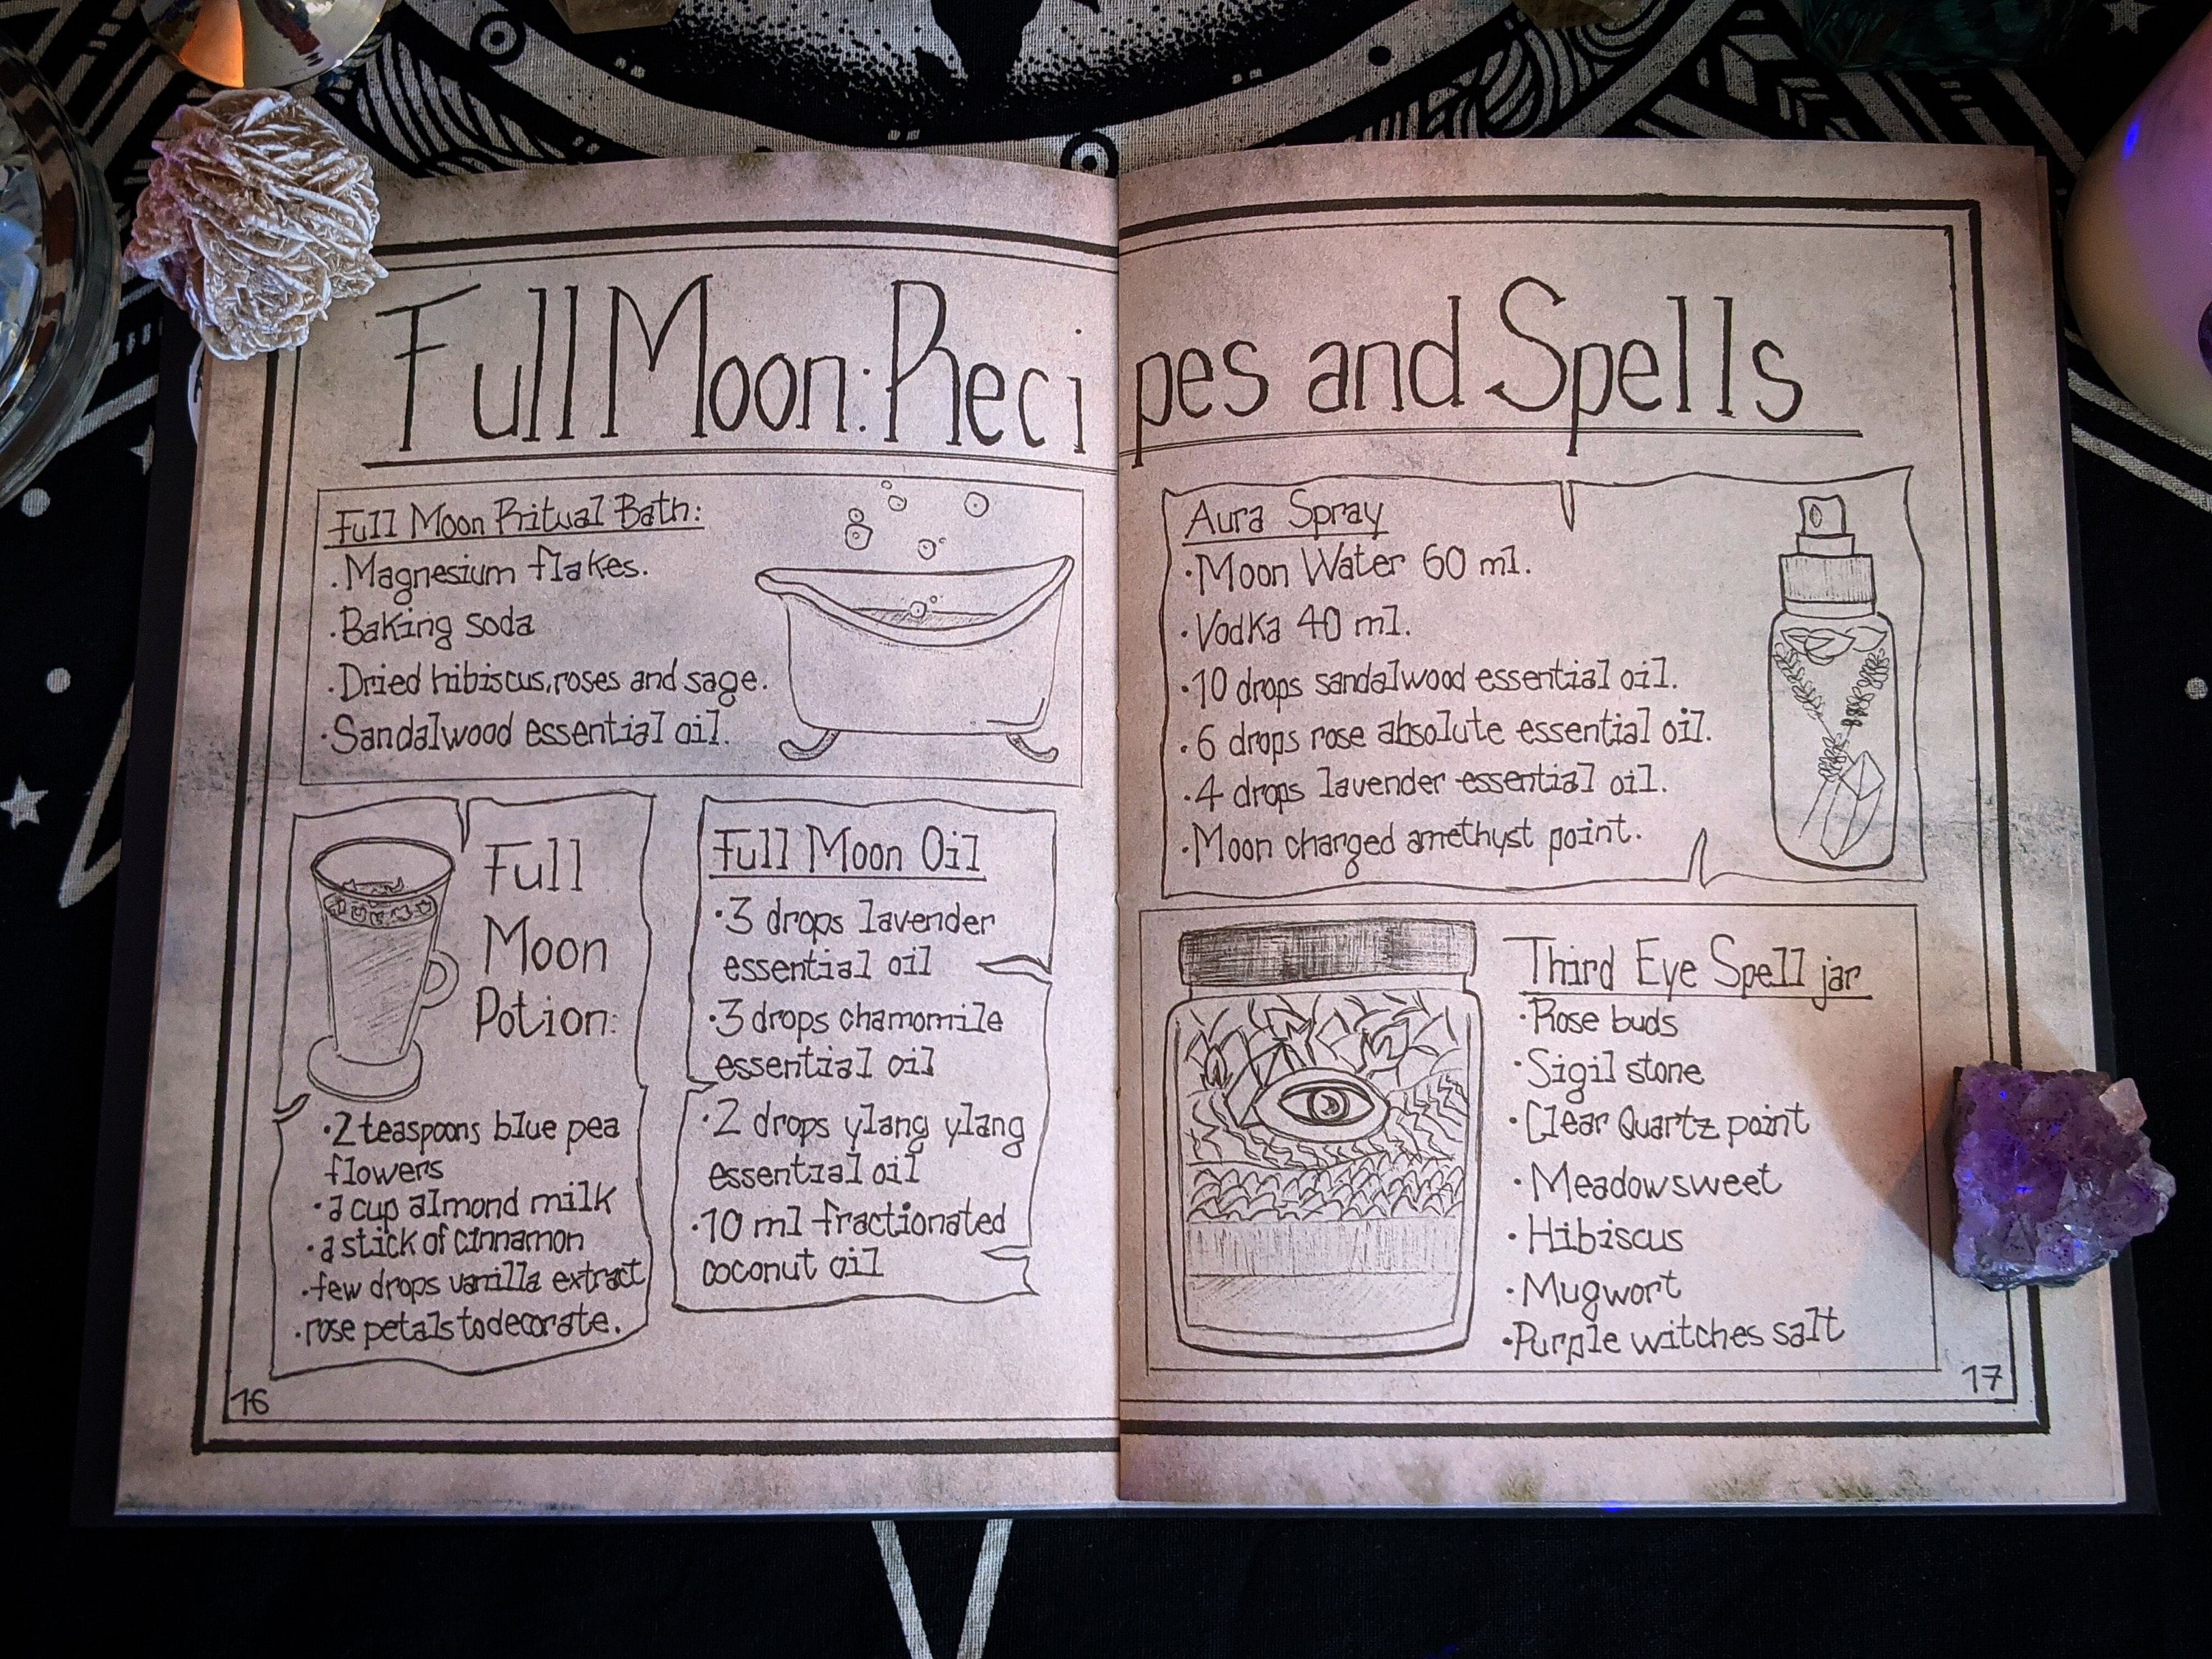 Full Moon: Recipes and Spells
Full Moon Ritual Bath:
.Magnesium flakes.
·Baking soda
·Dried hibiscus, roses and sage.
·Sandalwood essential oil.
Full
Moon
Potion:
·2 teaspoons blue pea
flowers
·a cup almond milk
·a stick of cinnamon
·few drops vanilla extract
·rose petals to decorate.
Full Moon Oil
·3 drops lavender
essential oil
·3 drops chamomile
essential oil
·2 drops ylang ylang
essential oil
·10 ml fractionated
coconut oil
16
Aura Spray
·Moon Water 60 ml.
·Vodka 40 ml.
·10 drops sandalwood essential oil.
·6 drops rose absolute essential oil.
·4 drops lavender essential oil.
·Moon charged amethyst point.
Third Eye Spell jar
·Rose buds
·Sigil stone
·Clear Quartz point
·Meadowsweet
·Hibiscus
·Mugwort
·Purple witches salt
17